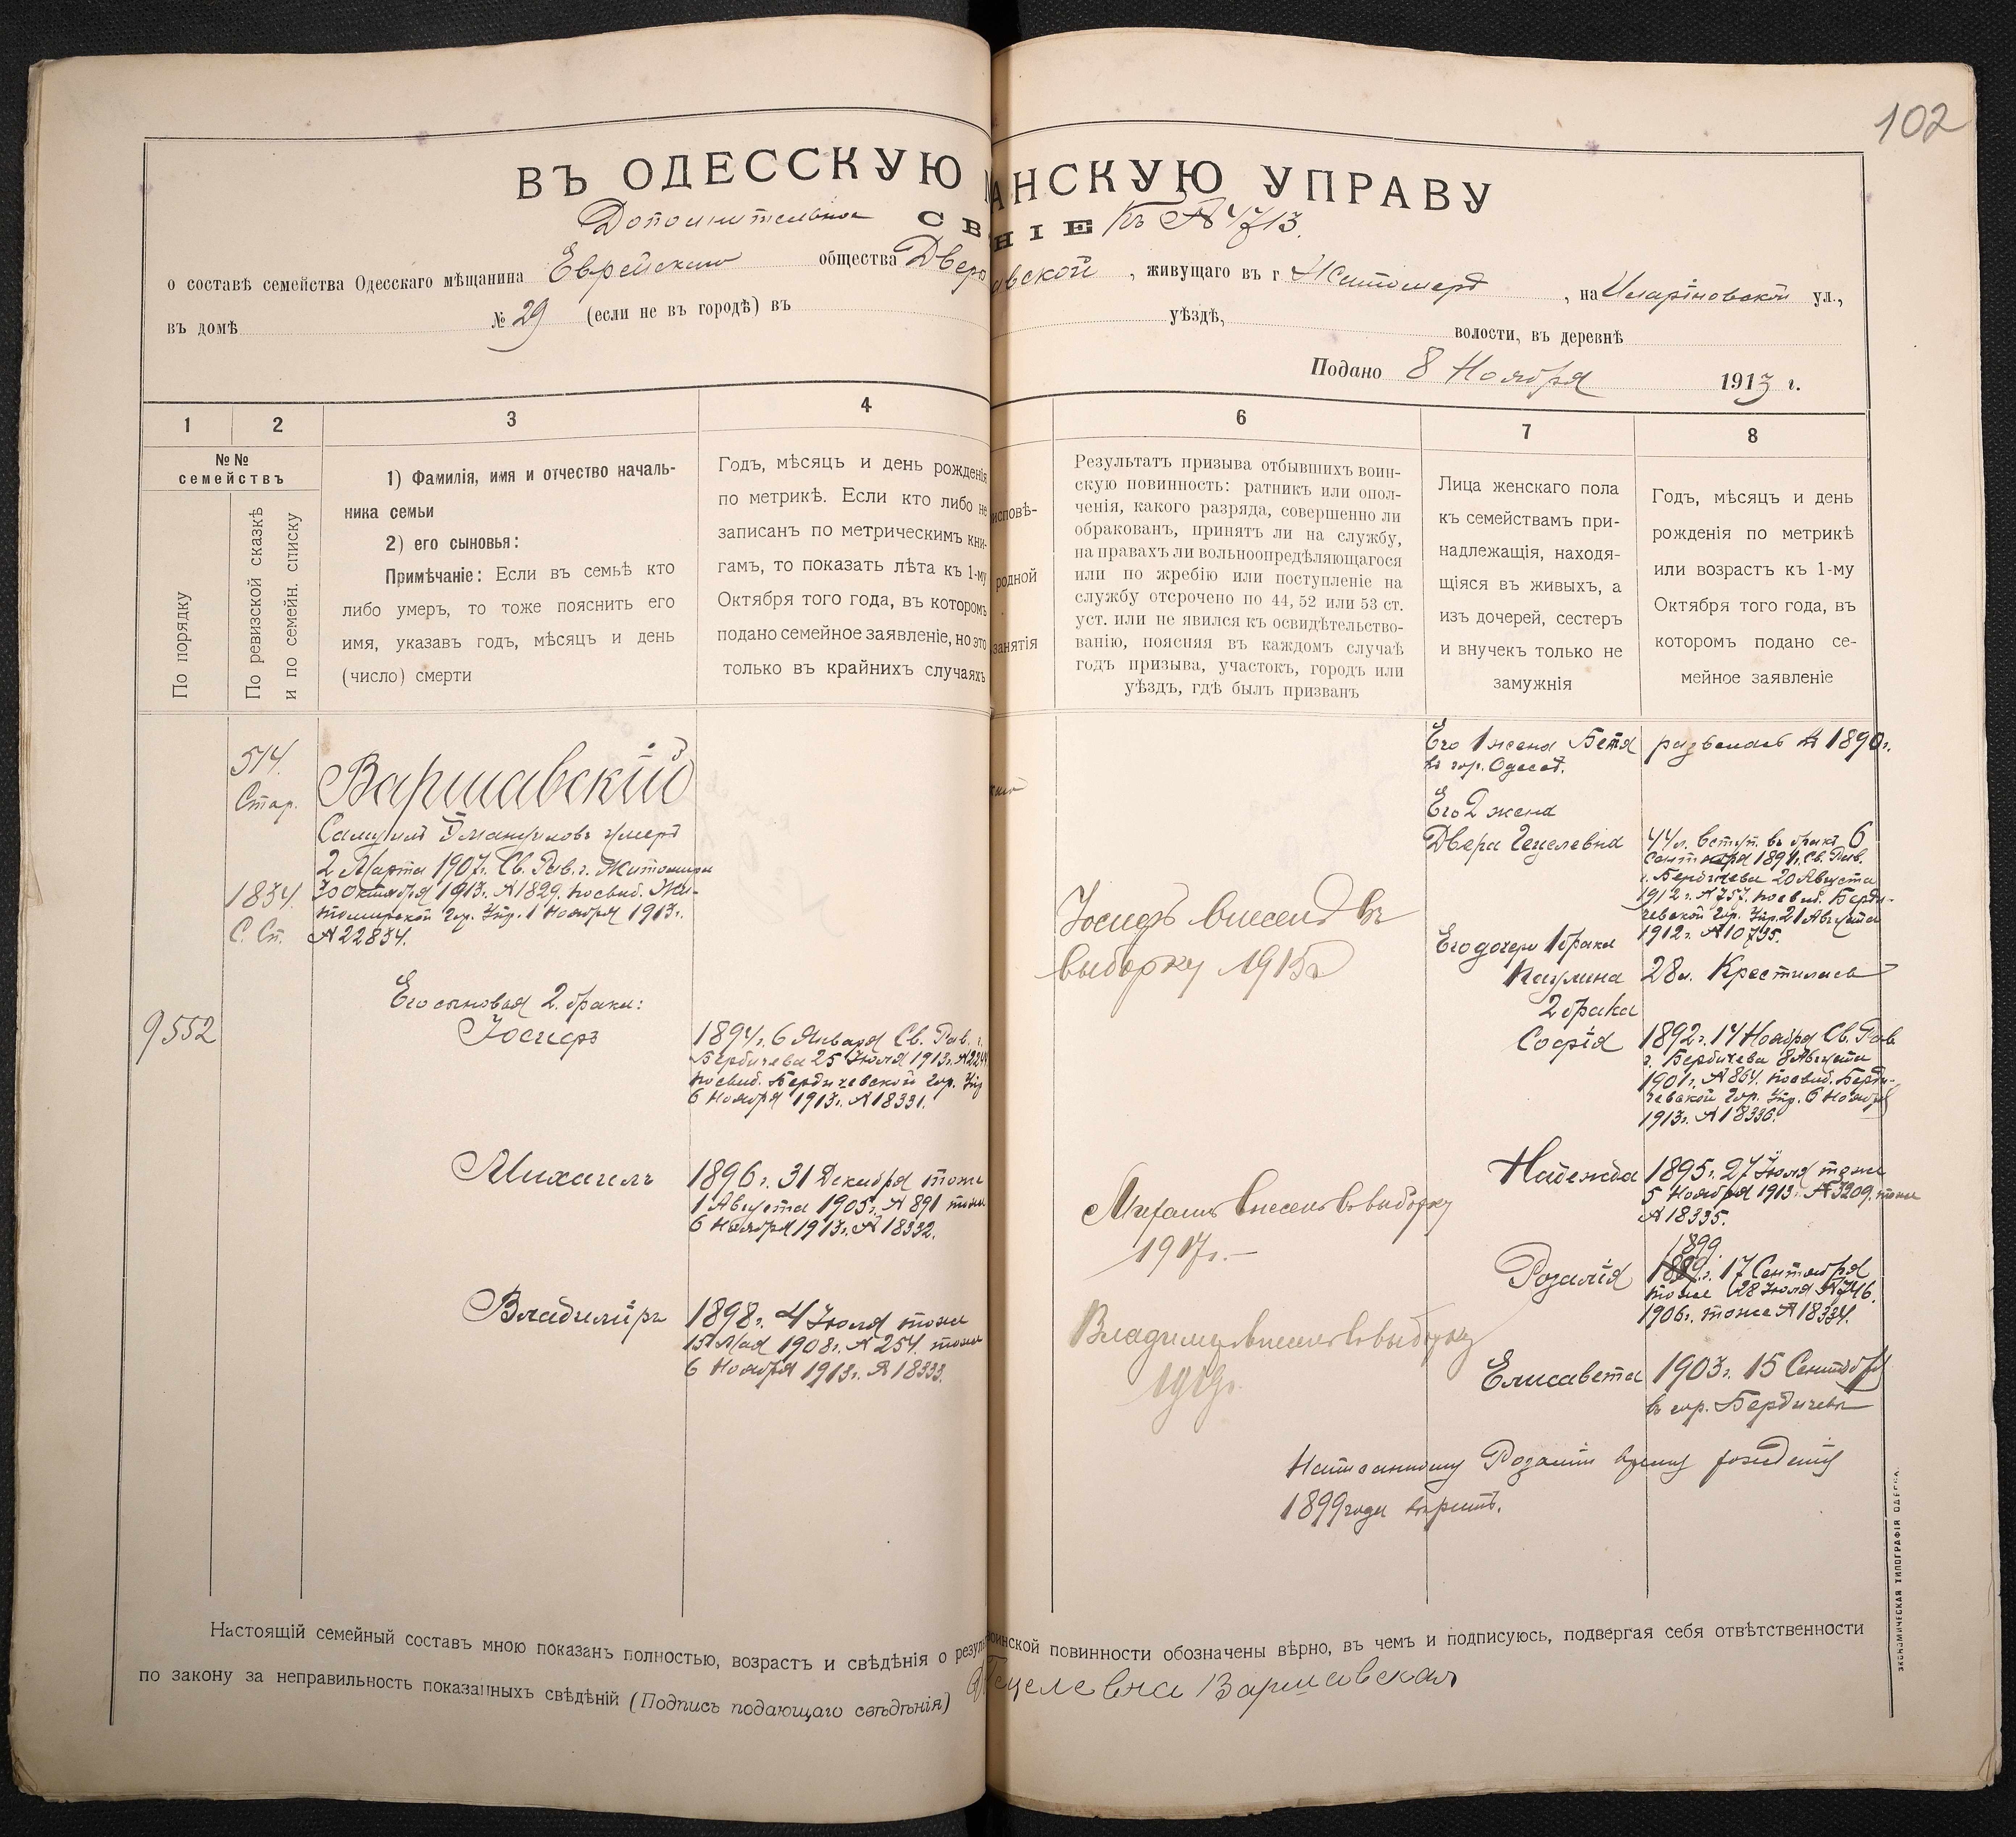 102
ВЪ ОДЕССКУЮ АНСКУЮ УПРАВУ
Дополнительное СВ НІЕ къ № 4713.
о составѣ семейства Одесскаго мѣщанина Еврейскаго общества Двера авской, живущаго въ г Житомерѣ, на Илариновской ул.,
въ домѣ № 29 (если не въ городѣ) въ уѣздѣ, волости, въ деревнѣ
Подано 8 Ноября 1913 г.
1 2 3 4 6 7 8
№№ семействъ
По порядку
По ревизской сказкѣ и по семейн. списку
1) Фамилія, имя и отчество началь-
ника семьи
2) его сыновья:
Примѣчаніе: Если въ семьѣ кто
либо умеръ, то тоже пояснить его
имя, указавъ годъ, мѣсяцъ и день
(число) смерти
Годъ, мѣсяцъ и день рожденія
по метрикѣ. Если кто либо не
записанъ по метрическимъ кни-
гамъ, то показать лѣта къ 1-му
Октября того года, въ которомъ
подано семейное заявленіе, но это
только въ крайнихъ случаяхъ
исповѣ-
родной
занятія
Результатъ призыва отбывшихъ воин-
скую повинность: ратникъ или опол-
ченія, какого разряда, совершенно ли
обракованъ, принятъ ли на службу,
на правахъ ли вольноопредѣляющагося
или по жребію или поступленіе на
службу отсрочено по 44, 52 или 53 ст.
уст. или не явился къ освидѣтельство-
ванію, поясняя въ каждомъ случаѣ
годъ призыва, участокъ, городъ или
уѣздъ, гдѣ былъ призванъ
Лица женскаго пола
къ семействамъ при-
надлежащія, находя-
щіяся въ живыхъ, а
изъ дочерей, сестеръ
и внучекъ только не
замужнія
Годъ, мѣсяцъ и день
рожденія по метрикѣ
или возрастъ къ 1-му
Октября того года, въ
которомъ подано се-
мейное заявленіе
514.
Стар.
1834.
С. Сп.
Варшавскій
Самуилъ Эмануиловъ умеръ
2 Марта 1907г. Св. Рав. г. Житомира
30 октября 1913г. № 1829. посвид. Жи-
томирской Гор. Упр. 1 Ноября 1913г.
№ 22834.
9552
Его сыновья 2. брака:
Іосифъ
1894г. 6 Января Св. Рав. г.
Бердичева 25 Іюля 1913г. № 224
посвид. Бердичевской Гор. Упр
6 Ноября 1913г. № 18331.
Михаилъ
1896г. 31 Декабря тоже
1 Августа 1905г. № 891 тоже
6 Ноября 1913г. № 18332.
Владиміръ
1898г. 4 Іюля тоже
15 Мая 1908г. № 254. тоже
6 Ноября 1913г. № 18333.
Іосифъ внесенъ въ
выборку 1915г
Михаилъ внесенъ въ выборку
1917г.
Владиміръ внесенъ въ выборку
1919г.
Его 1 жена Бетя развелась въ 1890г.
въ гор. Одессѣ.
Его 2 жена
Двера Гецелевна
44л. вступ. въ бракъ 6
Сентября 1891г. Св. Рав.
г. Бердичева 20 Августа
1912г. № 757. посвид. Берди-
чевской Гор. Упр. 21 Августа
1912г. № 10735.
Его дочери 1 брака
Паулина 28л. Крестилась
2 брака
Софія
1892г. 14 Ноября Св. Рав
г. Бердичева 8 Августа
1901г. № 864. посвид. Берди-
чевской Гор. Упр. 6 Ноября
1913г. № 18336.
Надежда
1895г. 27 Іюля тоже
5 Ноября 1913г. № 3209. тоже
№ 18335.
Розалія
1899.
1889г. 17 Сентября
тоже 28 Іюля № 746.
1906г. тоже № 18334.
Елисавета
1903г. 15 Сентября
въ гор. Бердичевѣ
Написанному Розаліи время рожденія
1899 года вѣрить.
Настоящій семейный составъ мною показанъ полностью, возрастъ и свѣдѣнія о резуль оинской повинности обозначены вѣрно, въ чемъ и подписуюсь, подвергая себя отвѣтственности
по закону за неправильность показанныхъ свѣдѣній (Подпись подающаго свѣдѣнія) Гецелевна Варшавская
ЭКОНОМИЧЕСКАЯ ТИПОГРАФІЯ ОДЕССА.